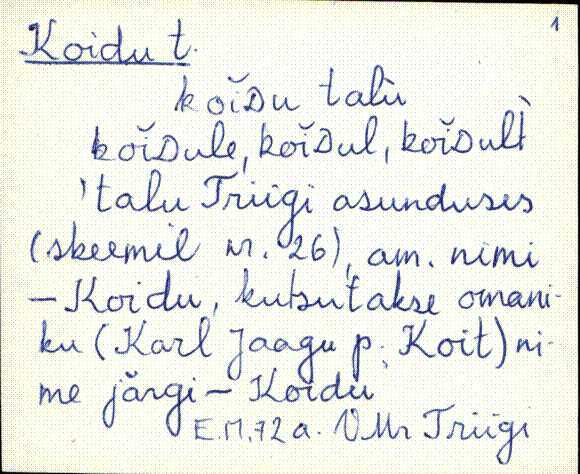 1
Koidu t.
koĭDu talù
koĭDule, koĭDul, koĭDult̀
'talu Triigi asunduses
(skeemil nr. 26), am. nimi
– Koidu, kutsutakse omani-
ku (Karl Jaagu p. Koit) ni-
me järgi – Koidu'
E.M. 72 a. VMr Triigi